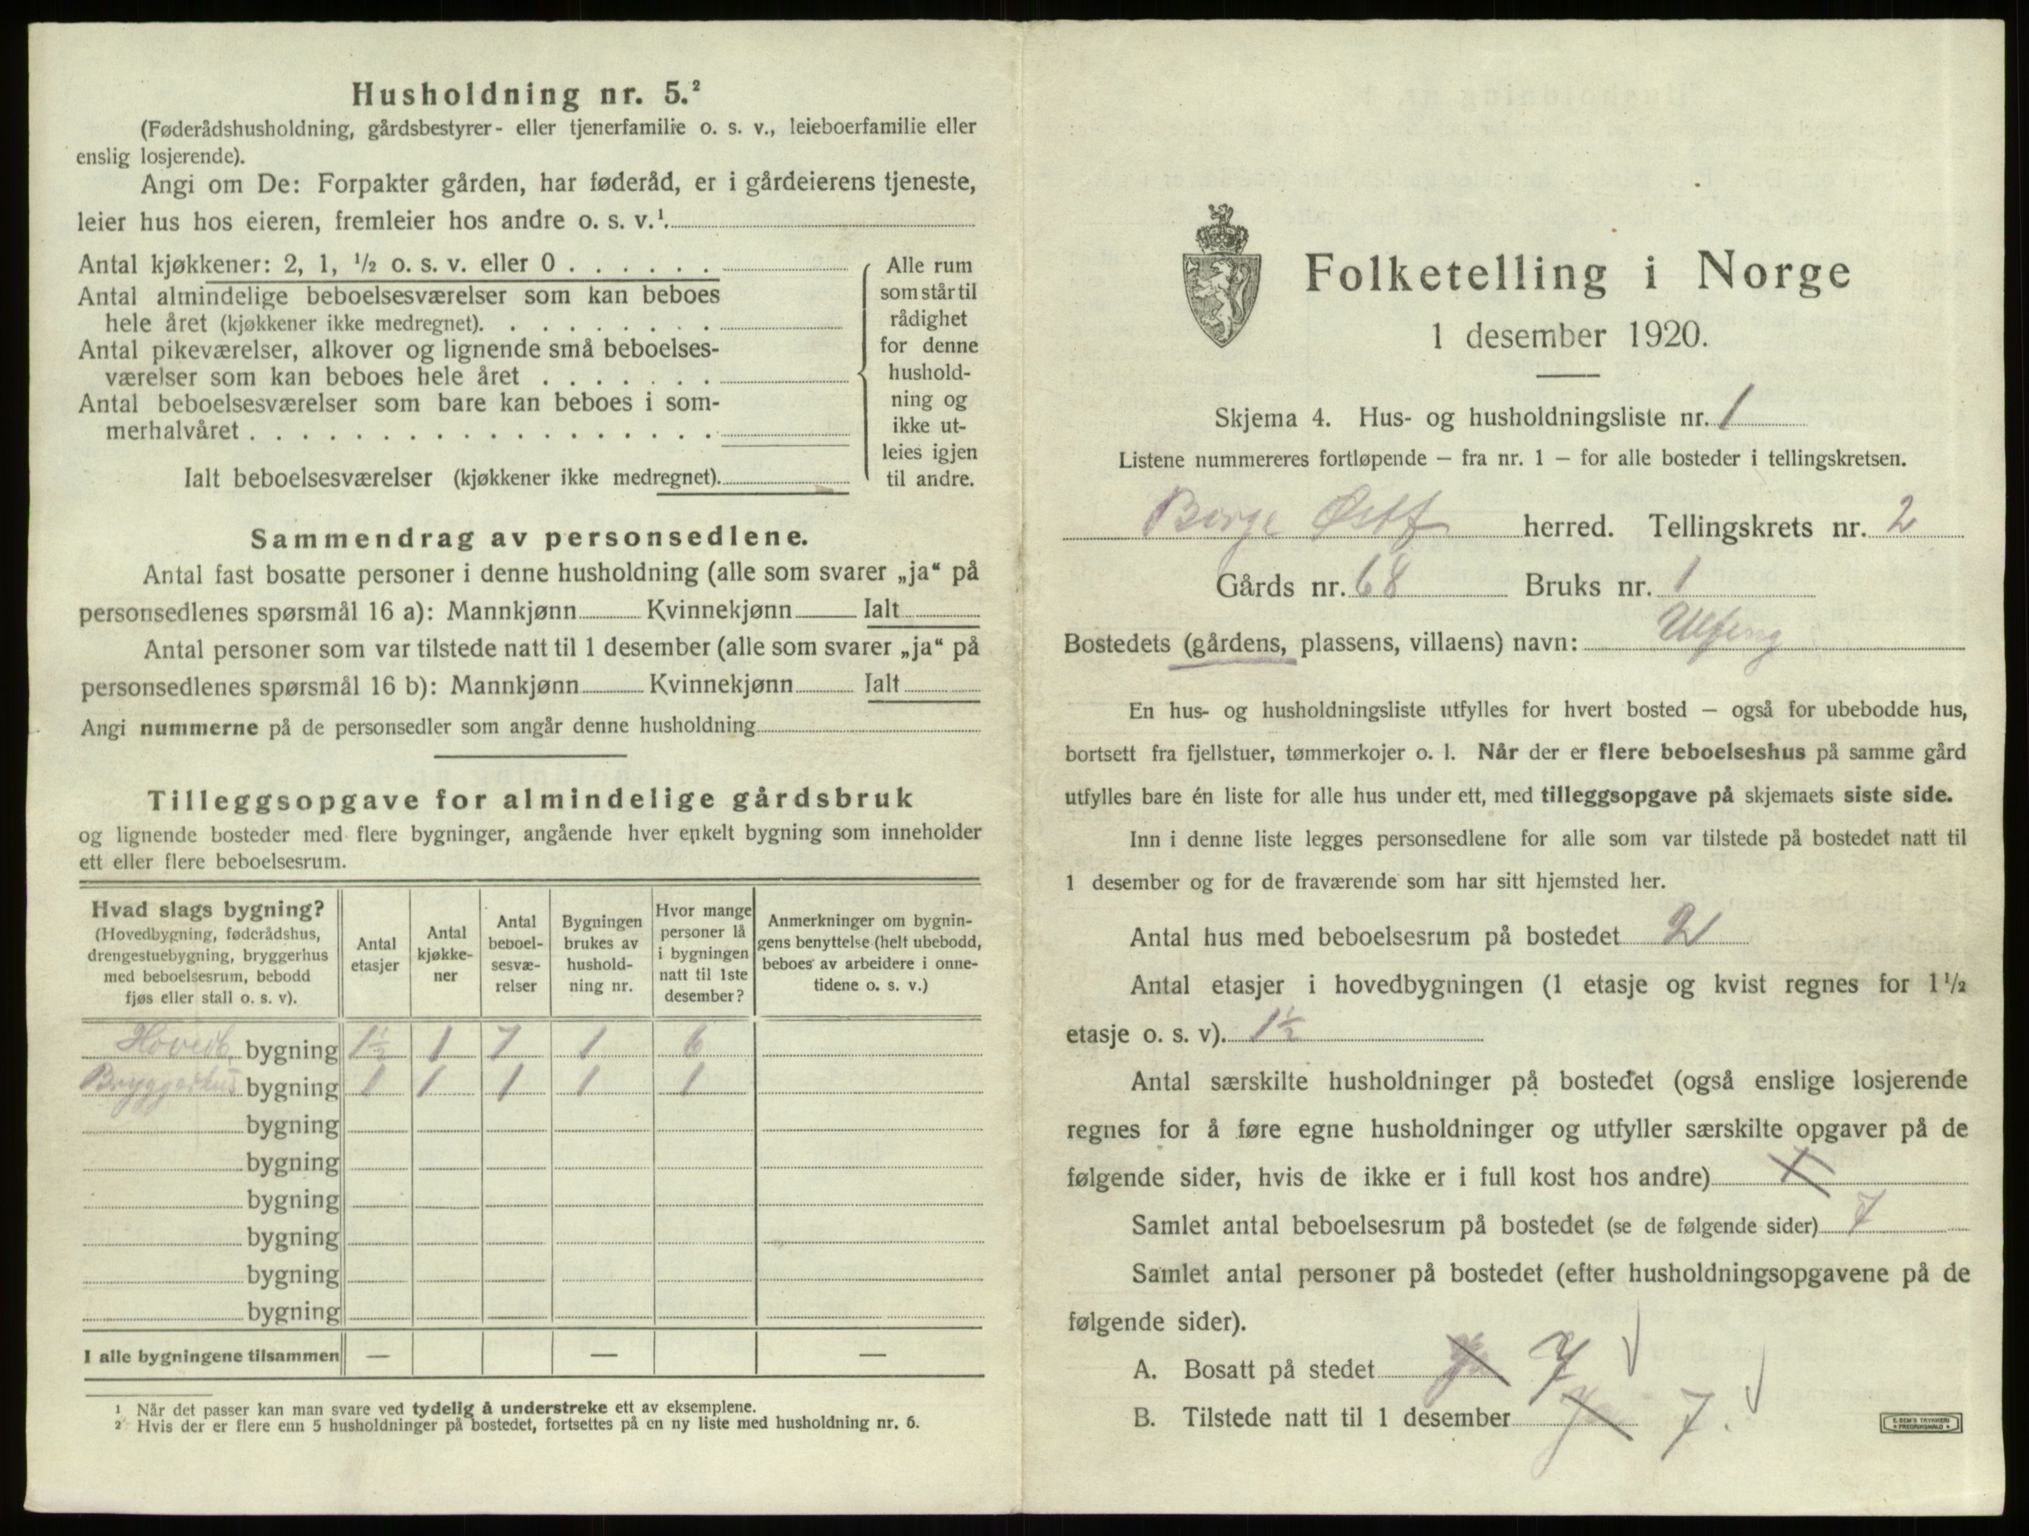 Husholdning nr. 5.²
(Føderådshusholdning, gårdsbestyrer- eller tjenerfamilie o. s. v., leieboerfamilie eller
enslig losjerende).
Angi om De: Forpakter gården, har føderåd, er i gårdeierens tjeneste,
leier hus hos eieren, fremleier hos andre o. s. v.¹.
Antal kjøkkener: 2, 1, ½ o. s. v. eller 0 . . . . . .
Antal almindelige beboelsesværelser som kan beboes
hele året (kjøkkener ikke medregnet). . . . . . . . .
Antal pikeværelser, alkover og lignende små beboelses-
værelser som kan beboes hele året . . . . . . .
Antal beboelsesværelser som bare kan beboes i som-
merhalvåret . . . . . . . . . . . . . . . . . .
Ialt beboelsesværelser (kjøkkener ikke medregnet).
Alle rum
som står til
rådighet
for denne
hushold-
ning og
ikke ut-
leies igjen
til andre.
Sammendrag av personsedlene.
Antal fast bosatte personer i denne husholdning (alle som svarer „ja“ på
personsedlenes spørsmål 16 a): Mannkjønn Kvinnekjønn Ialt
Antal personer som var tilstede natt til 1 desember (alle som svarer „ja“ på
personsedlenes spørsmål 16 b): Mannkjønn Kvinnekjønn Ialt
Angi nummerne på de personsedler som angår denne husholdning
Tilleggsopgave for almindelige gårdsbruk
og lignende bosteder med flere bygninger, angående hver enkelt bygning som inneholder
ett eller flere beboelsesrum.
Hvad slags bygning?
(Hovedbygning, føderådshus,
drengestuebygning, bryggerhus
med beboelsesrum, bebodd
fjøs eller stall o. s. v).
Antal
etasjer
Antal
kjøkke-
ner
Antal
beboel-
sesvæ-
relser
Bygningen
brukes av
hushold-
ning nr.
Hvor mange
personer lå
i bygningen
natt til 1ste
desember?
Anmerkninger om bygnin-
gens benyttelse (helt ubebodd,
beboes av arbeidere i onne-
tidene o. s. v.)
Hovedb. bygning 1½ 1 7 1 6
Bryggerhus bygning 1 1 1 1 1
bygning
bygning
bygning
bygning
bygning
bygning
I alle bygningene tilsammen — — —
¹ Når det passer kan man svare ved tydelig å understreke ett av eksemplene.
² Hvis der er flere enn 5 husholdninger på bostedet, fortsettes på en ny liste med husholdning nr. 6.
Folketelling i Norge
1 desember 1920.
Skjema 4. Hus- og husholdningsliste nr. 1
Listene nummereres fortløpende — fra nr. 1 — for alle bosteder i tellingskretsen.
Borge Østf herred. Tellingskrets nr. 2
Gårds nr. 68 Bruks nr. 1
Bostedets (gårdens, plassens, villaens) navn: Ulfeng
En hus- og husholdningsliste utfylles for hvert bosted — også for ubebodde hus,
bortsett fra fjellstuer, tømmerkojer o. l. Når der er flere beboelseshus på samme gård
utfylles bare én liste for alle hus under ett, med tilleggsopgave på skjemaets siste side.
Inn i denne liste legges personsedlene for alle som var tilstede på bostedet natt til
1 desember og for de fraværende som har sitt hjemsted her.
Antal hus med beboelsesrum på bostedet 2
Antal etasjer i hovedbygningen (1 etasje og kvist regnes for 1½
etasje o. s. v). 1½
Antal særskilte husholdninger på bostedet (også enslige losjerende
regnes for å føre egne husholdninger og utfyller særskilte opgaver på de
følgende sider, hvis de ikke er i full kost hos andre)
Samlet antal beboelsesrum på bostedet (se de følgende sider) 7
Samlet antal personer på bostedet (efter husholdningsopgavene på de
følgende sider).
A. Bosatt på stedet 7
B. Tilstede natt til 1 desember 7.
E. SEM'S TRYKKERI
FREDRIKSHALD